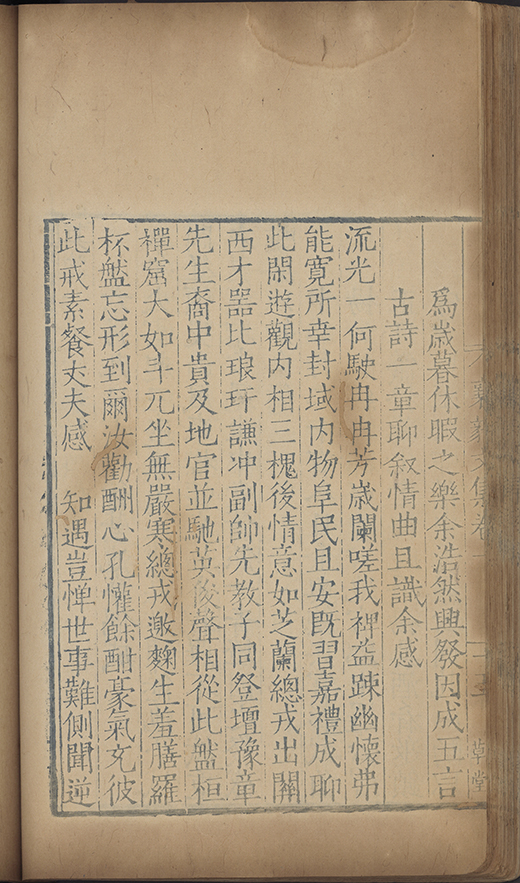 為歲暮休暇之樂余浩然興發因成五言
古詩一章聊叙情曲且識余感
流光一何駛冉冉芳歲闌嗟我裨益踈幽懷弗
能寛所幸封域内物阜民且安既習嘉禮成聊
此閑遊觀内相三槐後情意如芝蘭總戎出關
西才噐比琅玕謙冲副帥先教子同登壇豫章
先生裔中貴及地官並馳英俊聲相從此盤桓
禪窩大如斗元坐無嚴寒總戎邀麴生羞膳羅
杯盤忘形到爾汝勸酬心孔懽餘酣豪氣充彼
此戒素餐丈夫感 知遇豈惮世事難側聞逆